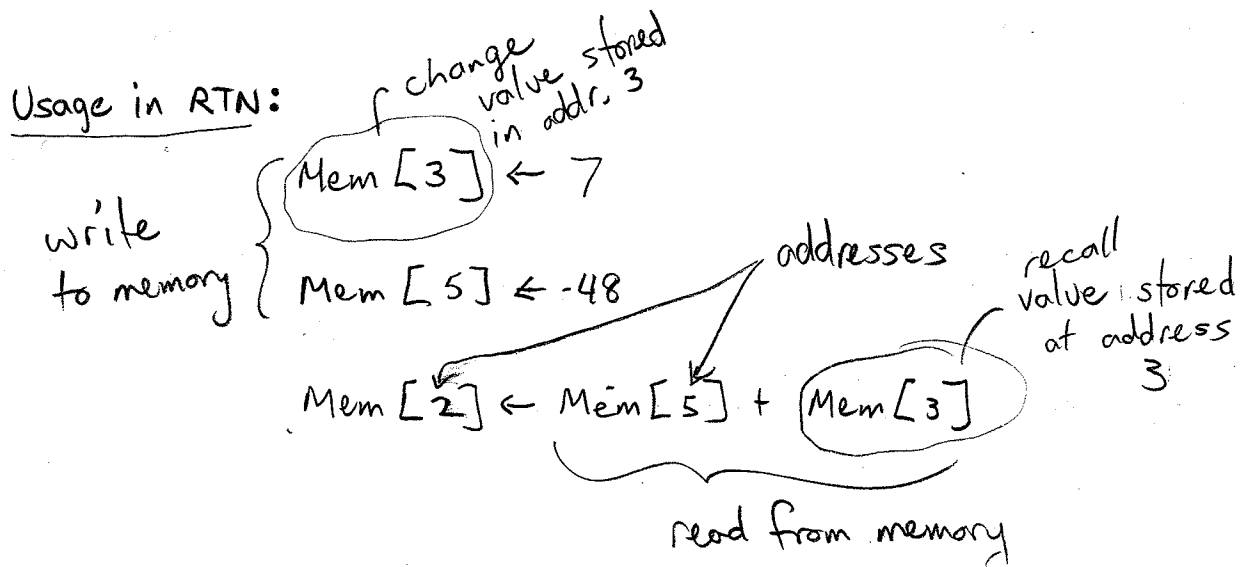 Usage in RTN:
change
value stored
in addr. 3
Mem [3] ← 7
write
to memory
Mem [5] ← -48
addresses
recall
value stored
at address
3
Mem [2] ← Mem [5] + Mem [3]
read from memory